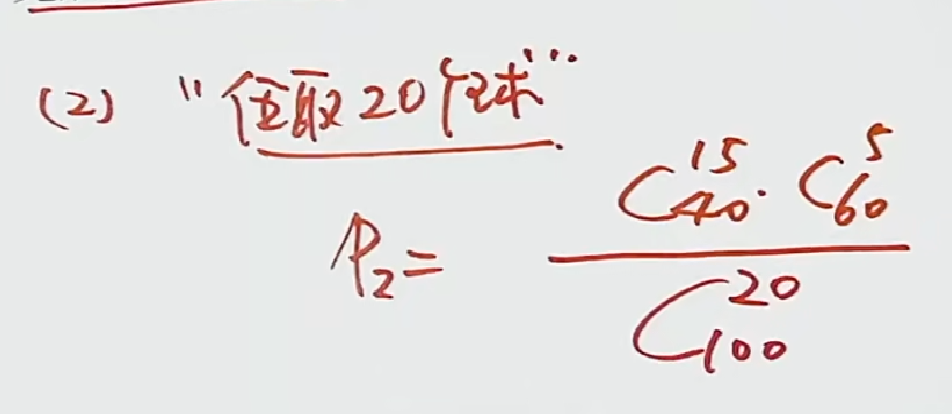 (2) "任取20个球"...
P₂= \frac{C_{40}^{15} \cdot C_{60}^{5}}{C_{100}^{20}}